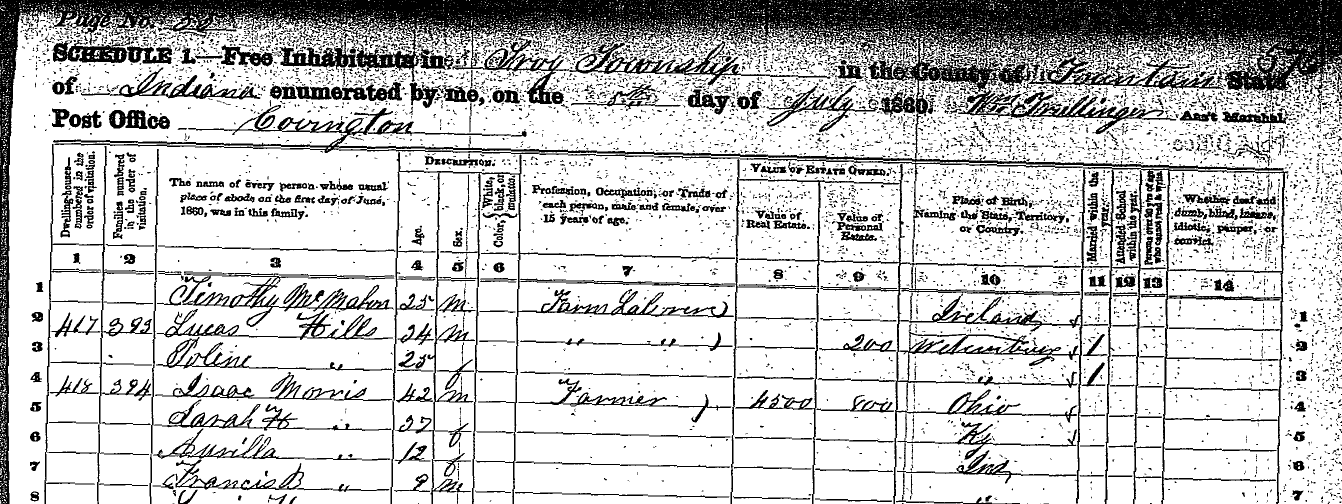 Page No. 52
SCHEDULE 1.—Free Inhabitants in Troy Township in the County of Fountain State
of Indiana enumerated by me, on the 5th day of July 1860. Wm Trullinger Ass't Marshal.
Post Office Covington.
Dwelling-houses—numbered in the order of visitation.
Families numbered in the order of visitation.
The name of every person whose usual place of abode on the first day of June, 1860, was in this family.
DESCRIPTION.
Age.
Sex.
Color, { White, black, or mulatto.
Profession, Occupation, or Trade of each person, male and female, over 15 years of age.
VALUE OF ESTATE OWNED.
Value of Real Estate.
Value of Personal Estate.
Place of Birth, Naming the State, Territory, or Country.
Married within the year.
Attended School within the year.
Whether deaf and dumb, blind, insane, idiotic, pauper, or convict.
1 2 3 4 5 6 7 8 9 10 11 12 13 14
1 Timothy McMahon 25 m Farm Laborer Ireland 1
2 417 393 Lucas Hills 24 m " " 200 1 2
3 Poline " 25 f " 1 3
4 418 394 Isaac Morris 42 m Farmer 4500 800 Ohio 4
5 Sarah H " 37 f Ky 5
6 " 12 f Ind 6
7 Francis B " 9 m " 7
8